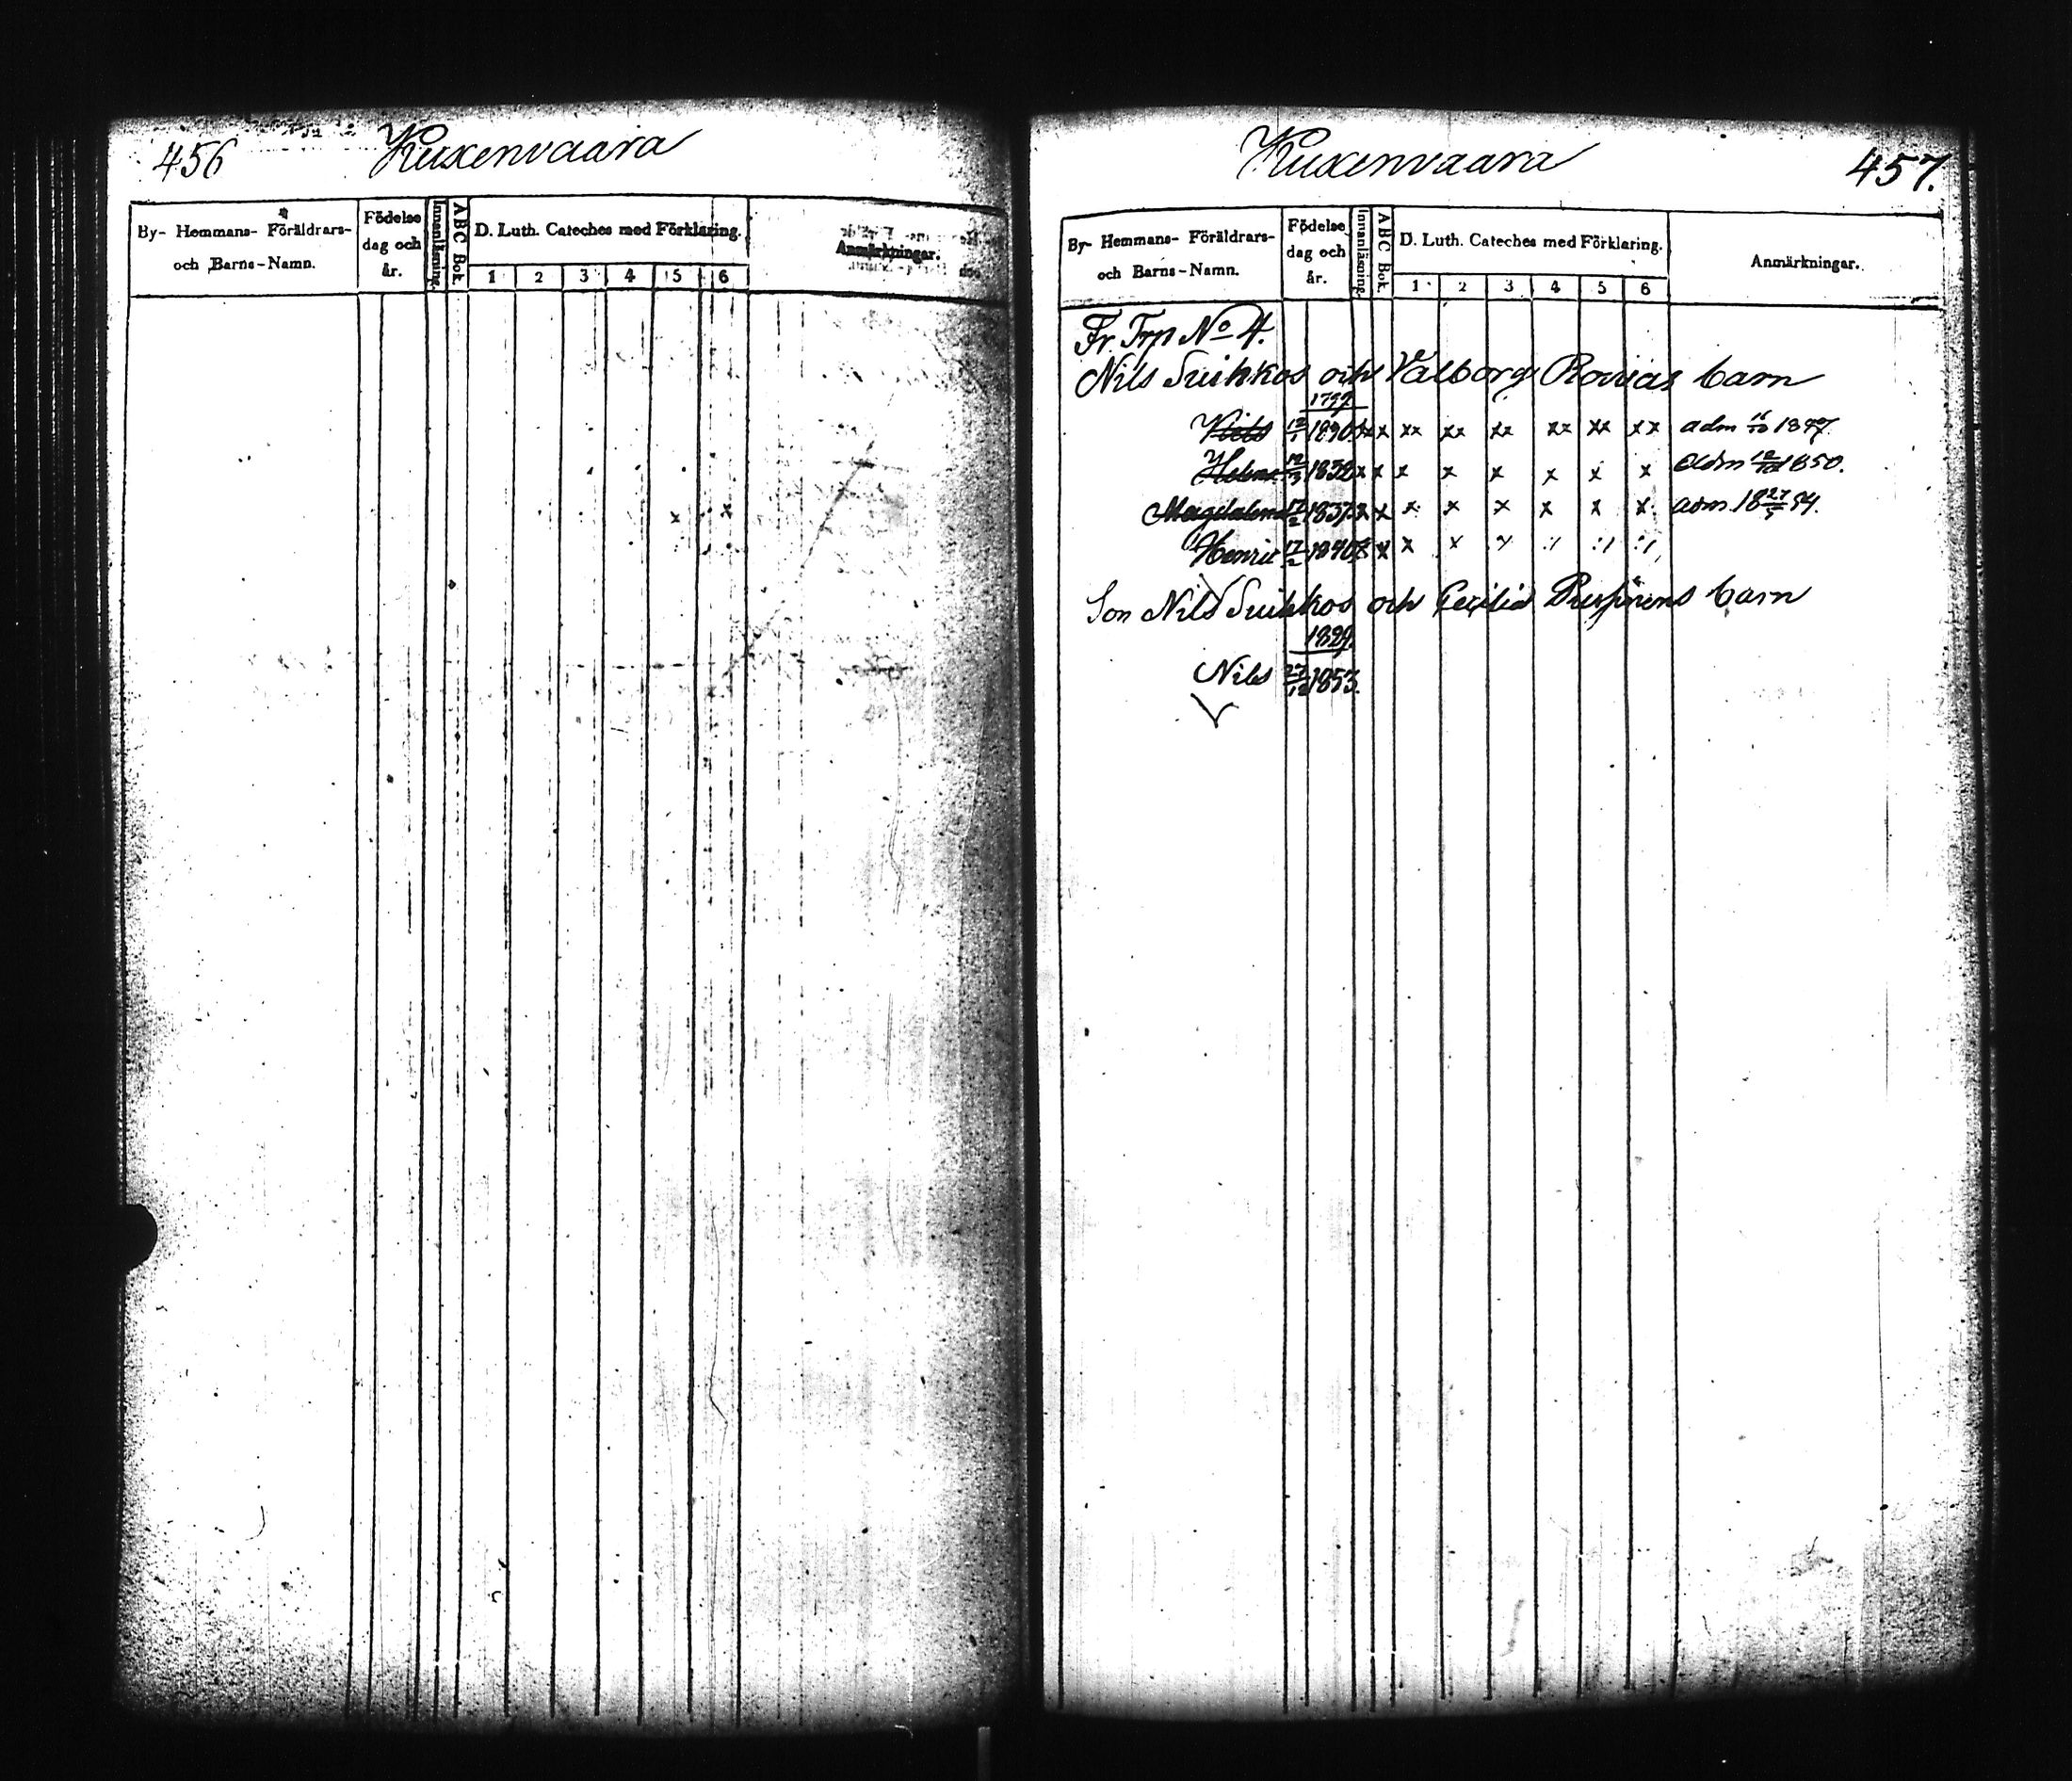 456 Kuxenvaara
By- Hemmans- Föräldrars- och Barns-Namn. Födelse dag och år. Innanläsning. ABC Bok. D. Luth. Cateches med Förklaring. Anmärkningar.
1 2 3 4 5 6
x x
Kuxenvaara 457.
By- Hemmans- Föräldrars- och Barns-Namn. Födelse dag och år. Innanläsning. ABC Bok. D. Luth. Cateches med Förklaring. Anmärkningar.
1 2 3 4 5 6
Fr. Trp No 4.
Nils Suikkos och Valborg Rovias barn
1797
Nils 1830 xx x xx xx xx xx xx xx adm 1847.
Helena 12/3 1832 x x x x x x x x adm 1850.
Magdalena 17/2 1837 x x x x x x x x adm. 18 27/5 54.
Henric 17/2 1840 x x x x
Son Nils Suikkos och Cecilia barn
1829.
Nils 27/12 1853.